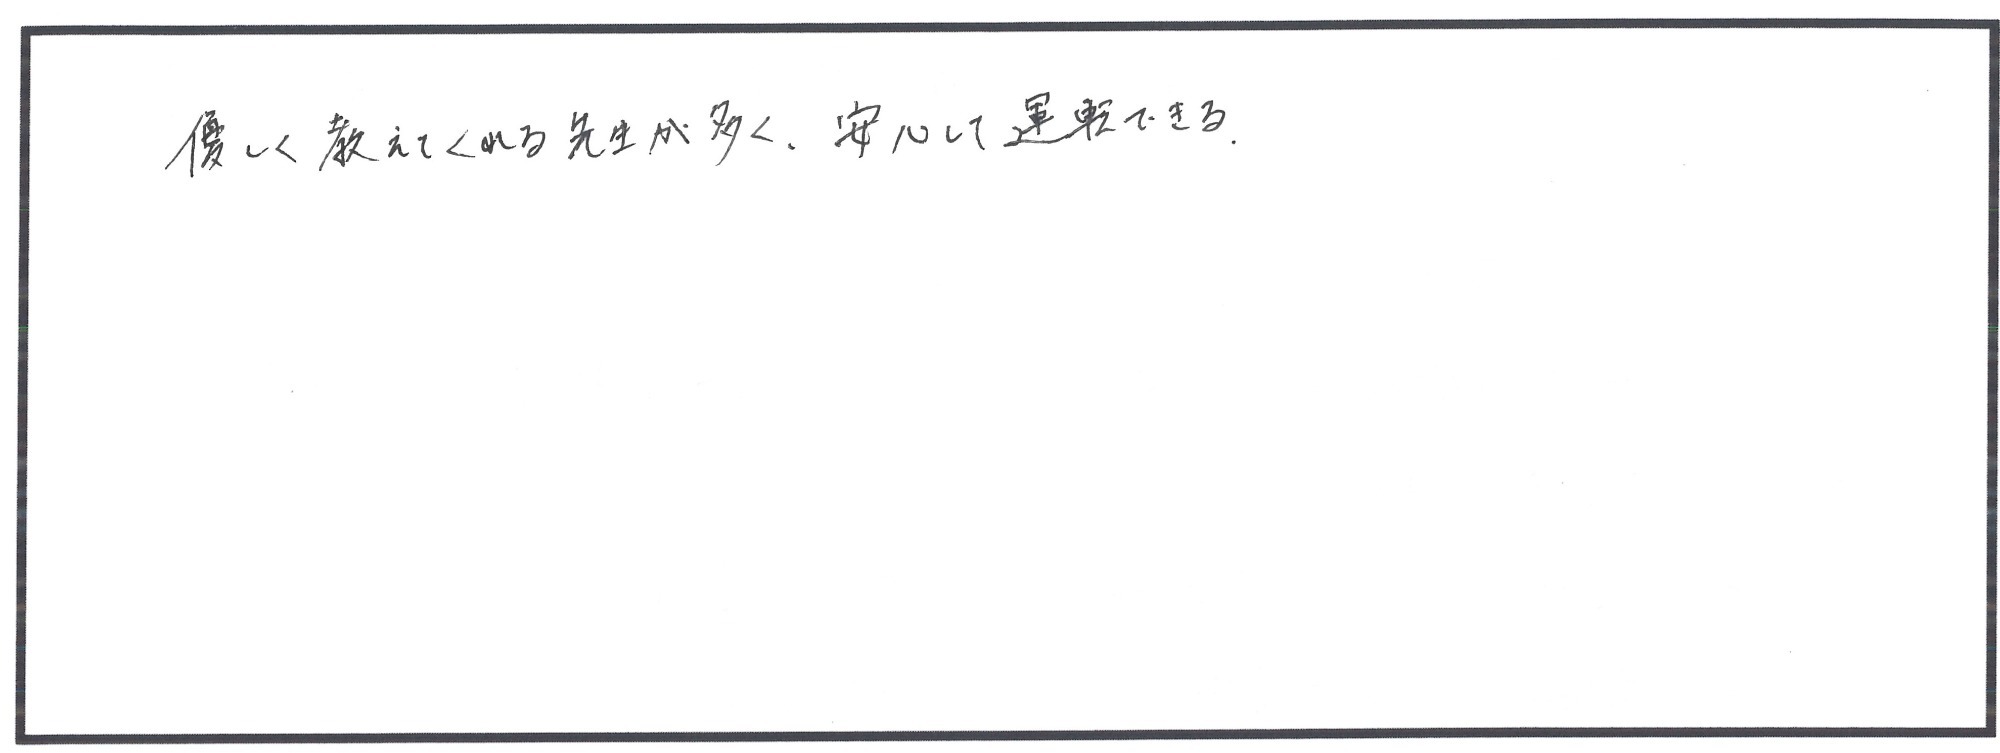 優しく教えてくれる先生が多く、安心して運転できる.